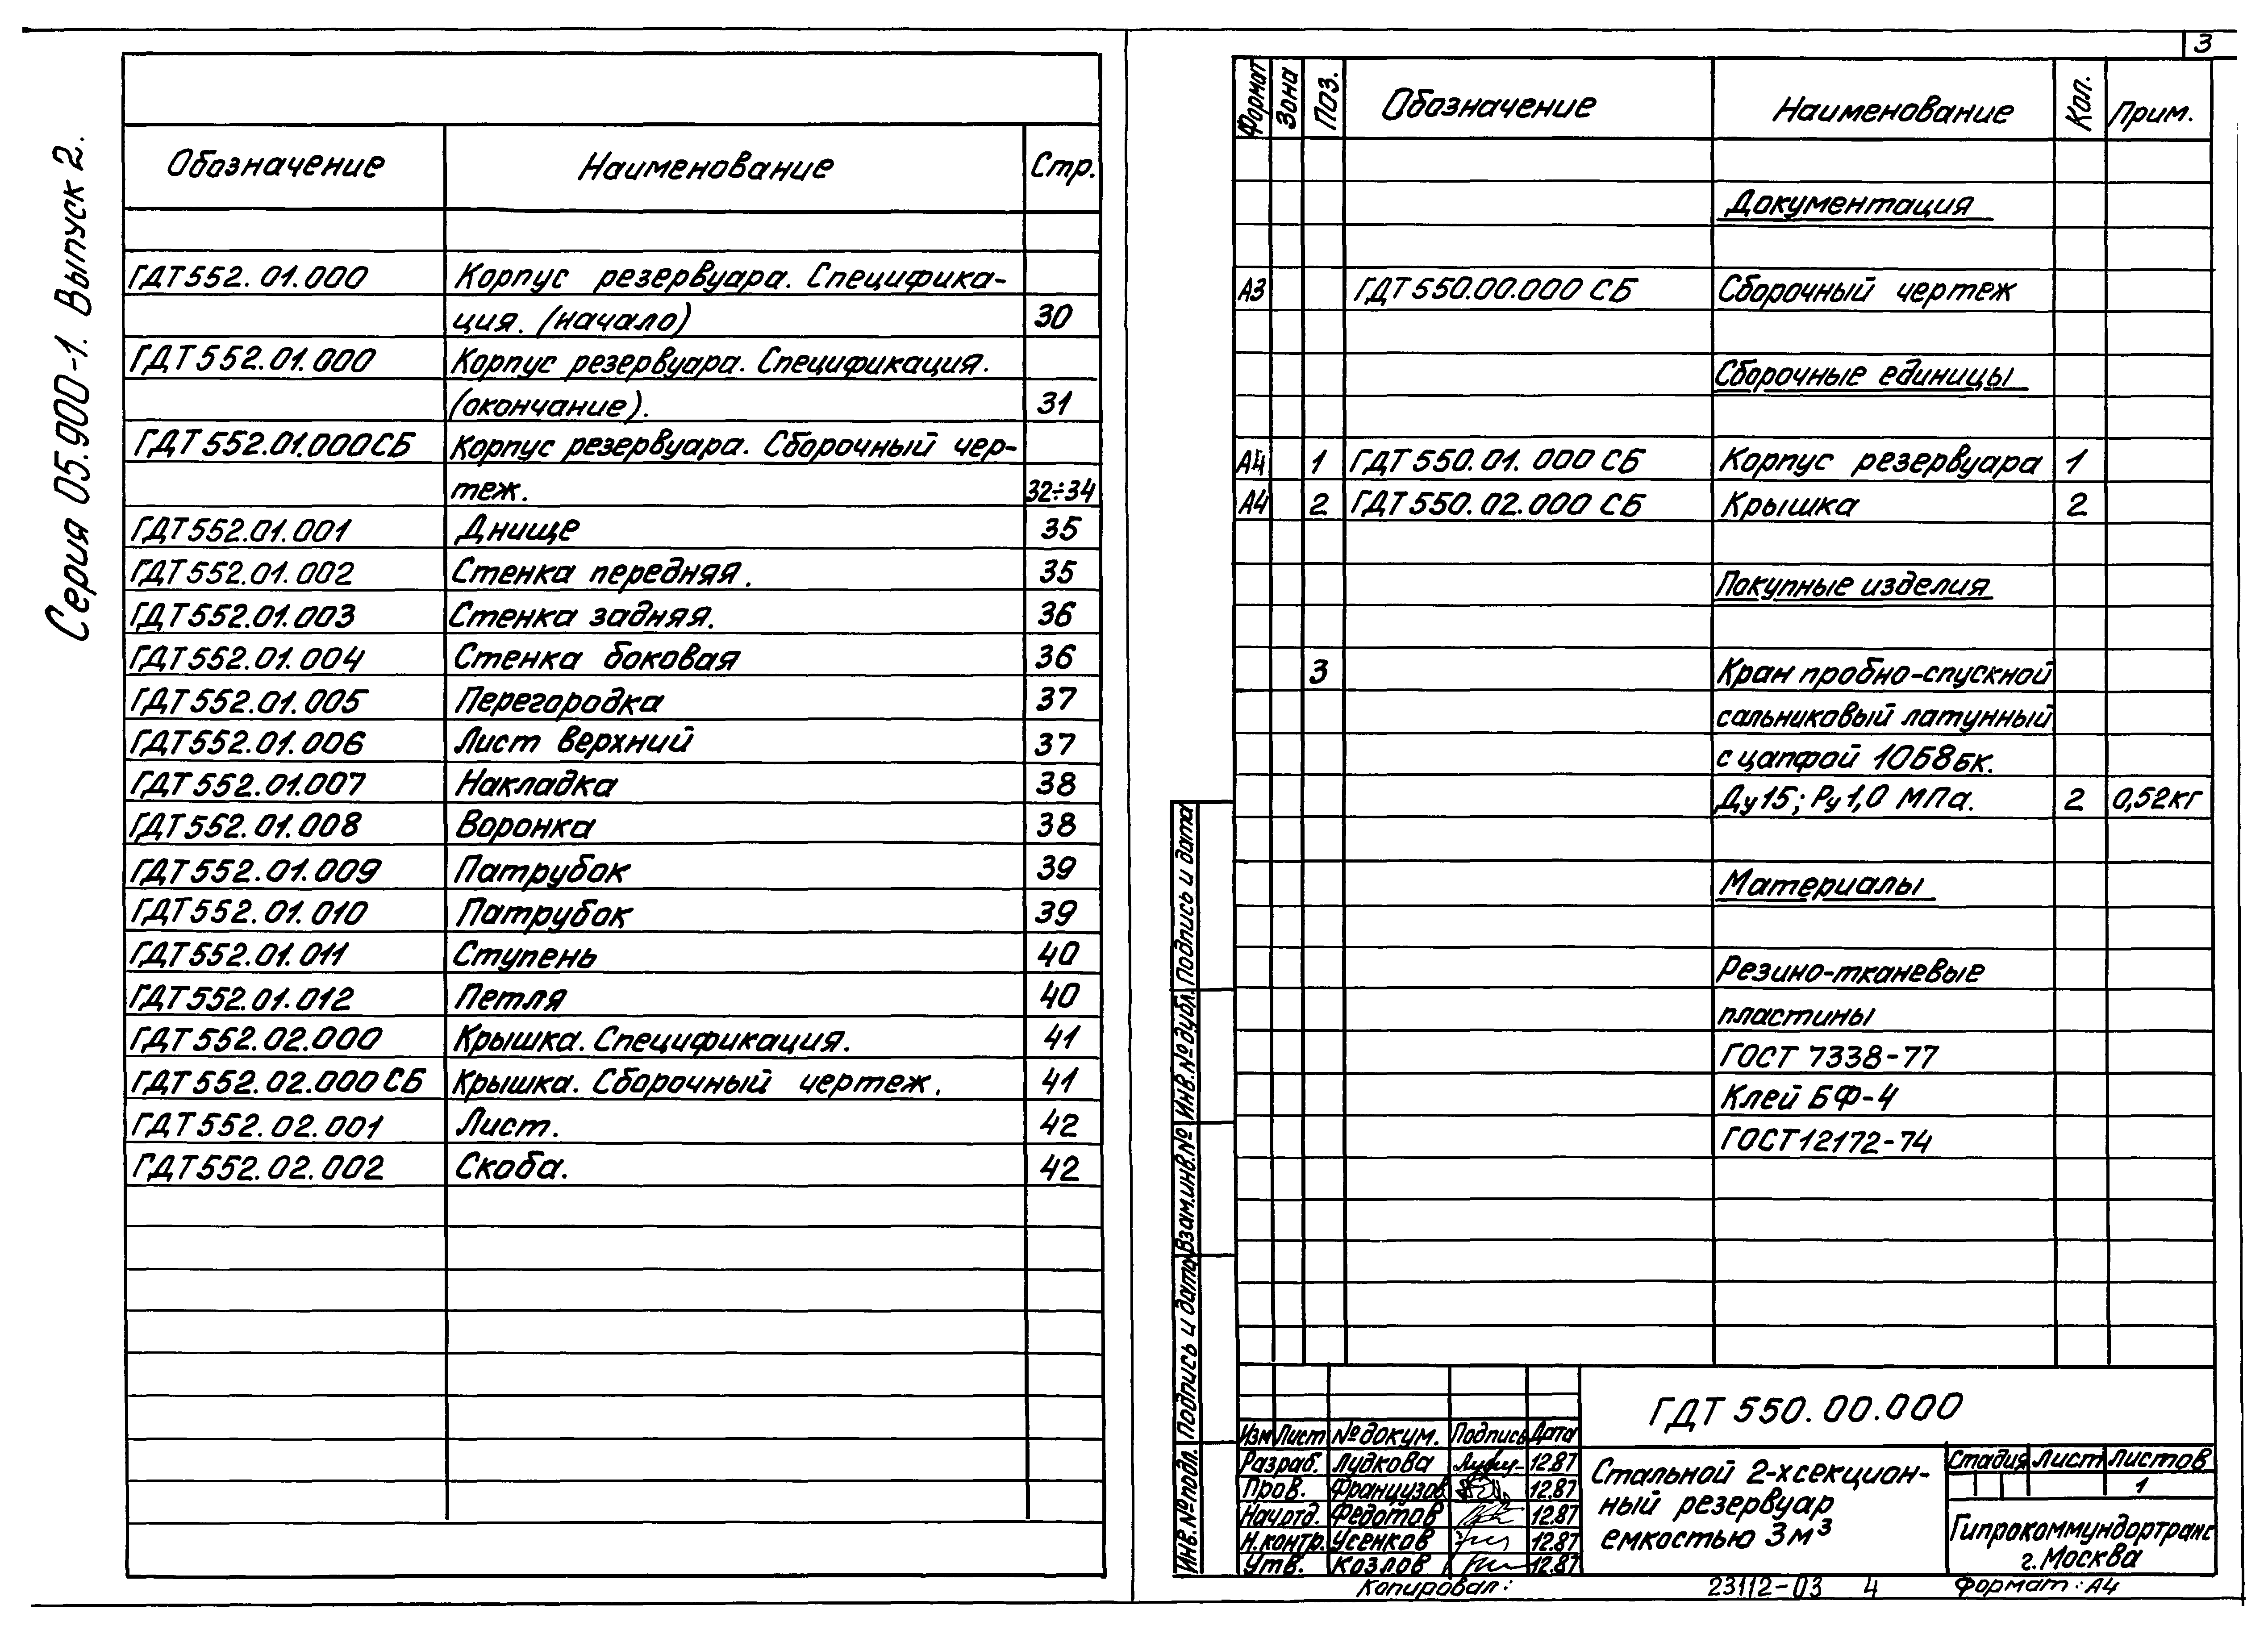 Серия 05.900-1. Выпуск 2.
Обозначение Наименование Стр.
ГДТ 552.01.000 Корпус резервуара. Специфика-
ция. (начало) 30
ГДТ 552.01.000 Корпус резервуара. Спецификация.
(окончание). 31
ГДТ 552.01.000 СБ Корпус резервуара. Сборочный чер-
теж. 32÷34
ГДТ 552.01.001 Днище 35
ГДТ 552.01.002 Стенка передняя. 35
ГДТ 552.01.003 Стенка задняя. 36
ГДТ 552.01.004 Стенка боковая 36
ГДТ 552.01.005 Перегородка 37
ГДТ 552.01.006 Лист верхний 37
ГДТ 552.01.007 Накладка 38
ГДТ 552.01.008 Воронка 38
ГДТ 552.01.009 Патрубок 39
ГДТ 552.01.010 Патрубок 39
ГДТ 552.01.011 Ступень 40
ГДТ 552.01.012 Петля 40
ГДТ 552.02.000 Крышка. Спецификация. 41
ГДТ 552.02.000 СБ Крышка. Сборочный чертеж. 41
ГДТ 552.02.001 Лист. 42
ГДТ 552.02.002 Скоба. 42
3
Формат Зона Поз. Обозначение Наименование Кол. Прим.
Документация
А3 ГДТ 550.00.000 СБ Сборочный чертеж
Сборочные единицы
А4 1 ГДТ 550.01.000 СБ Корпус резервуара 1
А4 2 ГДТ 550.02.000 СБ Крышка 2
Покупные изделия
3 Кран пробно-спускной
сальниковый латунный
с цапфой 10Б8бк.
Ду 15; Ру 1,0 МПа. 2 0,52кг
Материалы
Резино-тканевые
пластины
ГОСТ 7338-77
Клей БФ-4
ГОСТ 12172-74
Инв.№подл. Подпись и дата Взам.инв.№ Инв.№дубл. Подпись и дата
ГДТ 550.00.000
Изм Лист №докум. Подпись Дата
Разраб. Лудкова 12.87
Пров. Французов 12.87
Нач.отд. Федотов 12.87
Н.контр. Усенков 12.87
Утв. Козлов 12.87
Стальной 2-хсекцион-
ный резервуар
емкостью 3м³
Стадия Лист Листов
1
Гипрокоммундортранс
г.Москва
Копировал: 23112-03 4 Формат: А4